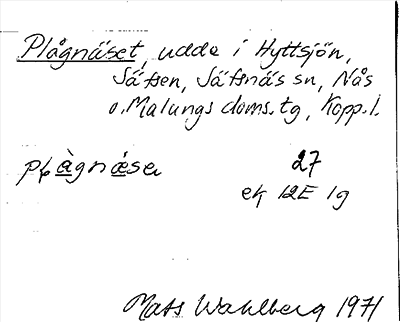 Plågnäset, udde i Hyttsjön,
Säfsen, Säfsnäs sn, Nås
o. Malungs doms.tg, Kopp.l.
plågnäsa 27
ek 12E 1g
Mats Wahlberg 1971